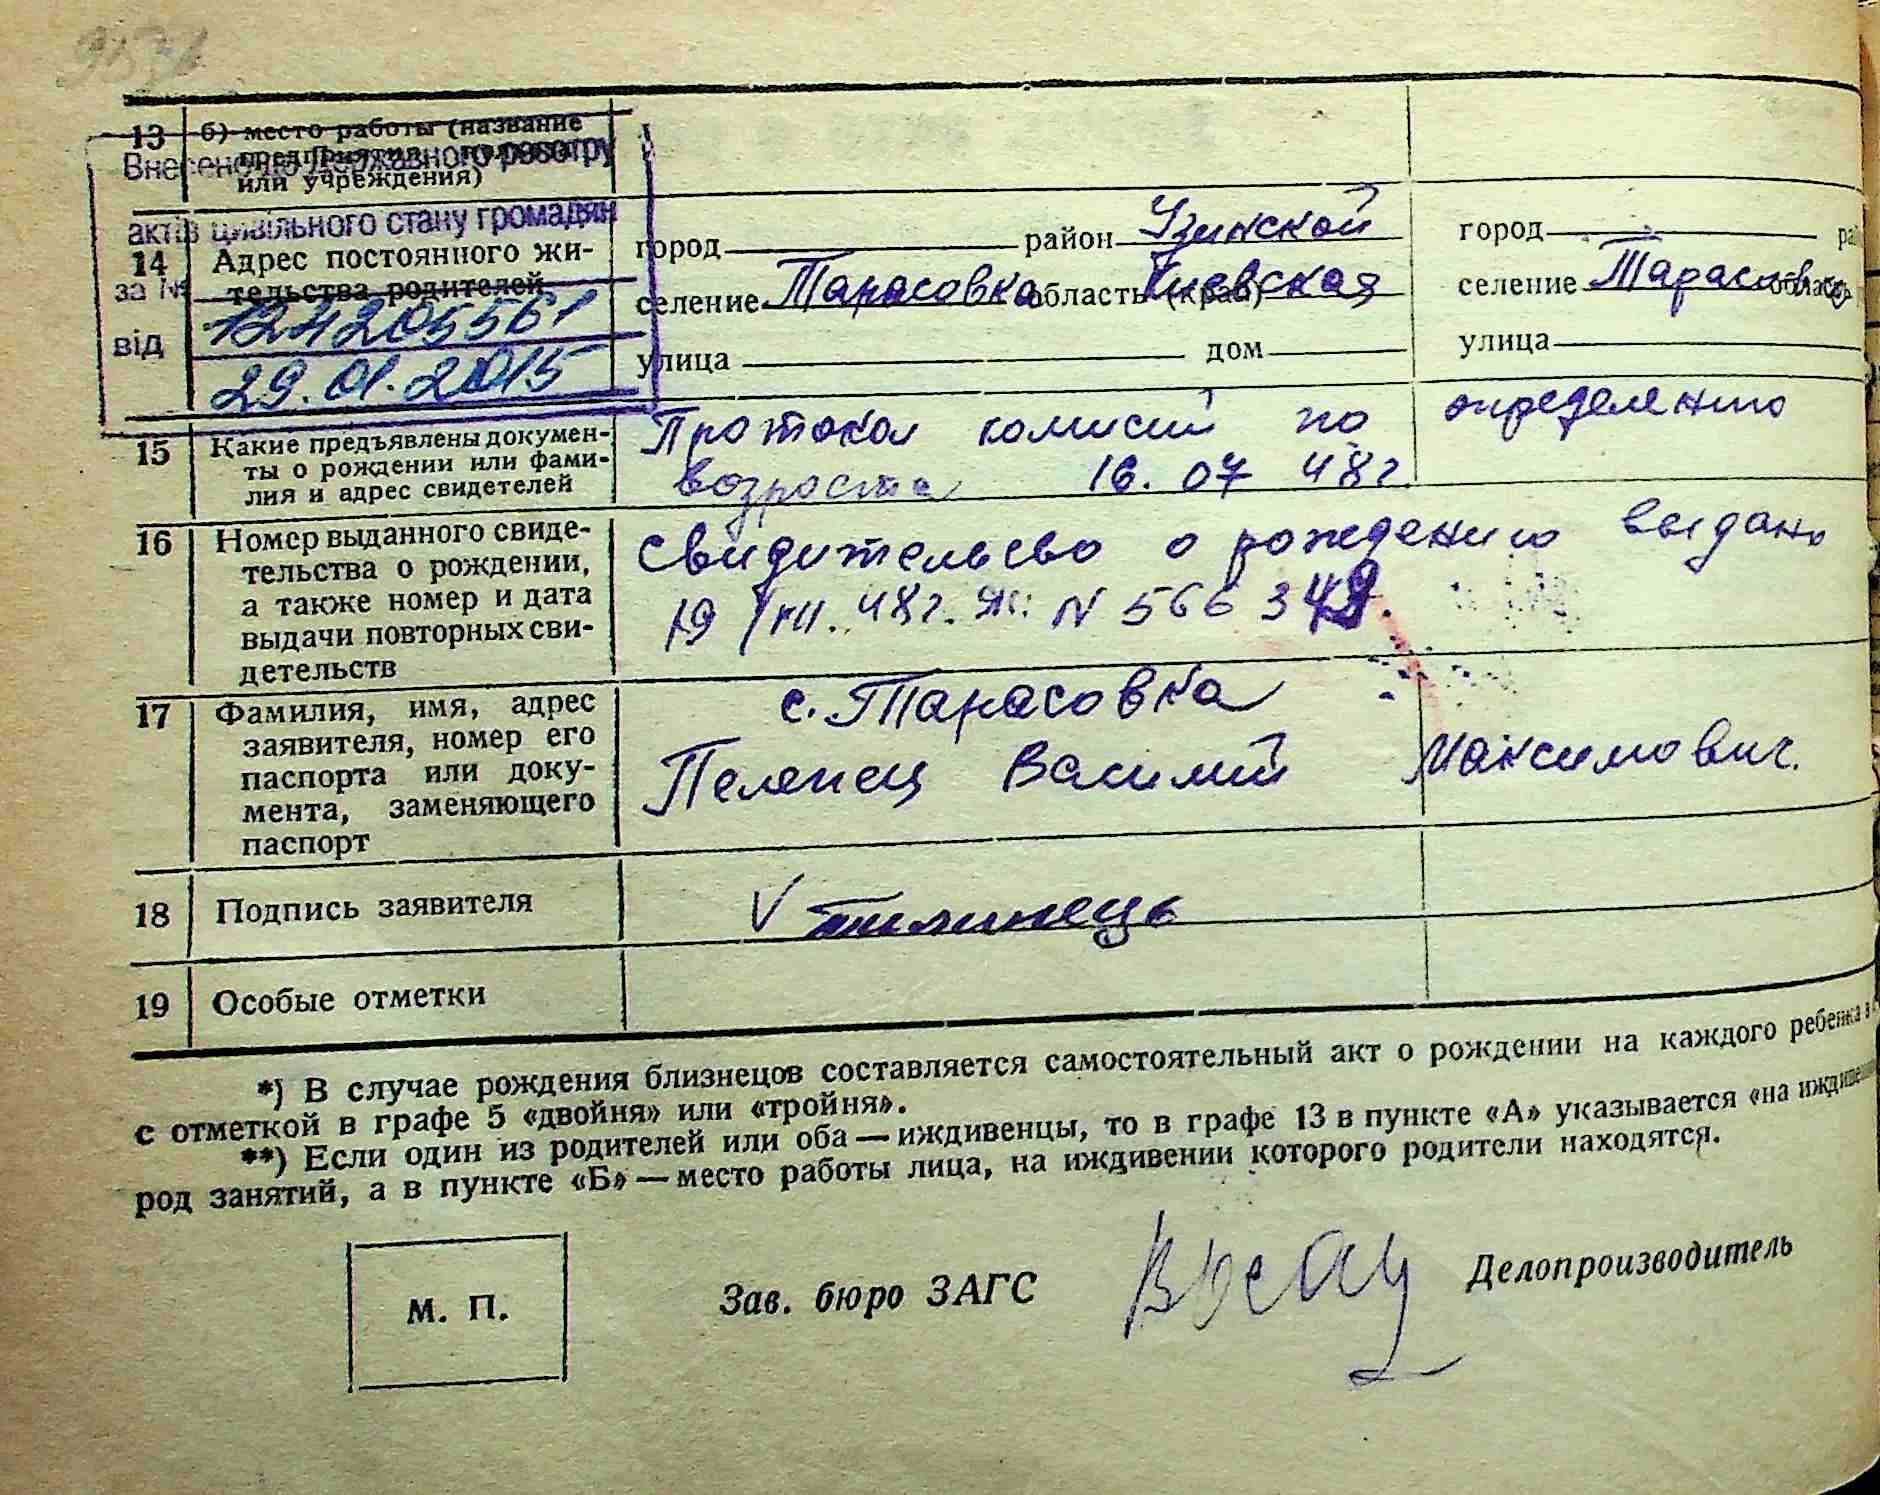 13 б) место работы (название
предприятия
или учреждения)
Внесено до Державного реєстру
актів цивільного стану громадян
за №
124205561
від
29.01.2015
14 Адрес постоянного жи-
тельства родителей
город район Узинской
селение Тарасовка область (край) Киевская
улица дом
город
селение Тарасовка область
улица
15 Какие предъявлены докумен-
ты о рождении или фами-
лия и адрес свидетелей
Протокол комисий по определению
возроста 16. 07 48 г.
16 Номер выданного свиде-
тельства о рождении,
а также номер и дата
выдачи повторных сви-
детельств
Свидительсво о рождению выдано
19 /VII. 48 г. ЯЖ: N 566 349.
17 Фамилия, имя, адрес
заявителя, номер его
паспорта или доку-
мента, заменяющего
паспорт
с. Тарасовка
Пелепец Василий Максимович.
18 Подпись заявителя
V
19 Особые отметки
*) В случае рождения близнецов составляется самостоятельный акт о рождении на каждого ребенка в
с отметкой в графе 5 «двойня» или «тройня».
**) Если один из родителей или оба — иждивенцы, то в графе 13 в пункте «А» указывается «на
род занятий, а в пункте «Б» — место работы лица, на иждивении которого родители находятся.
М. П.
Зав. бюро ЗАГС Делопроизводитель